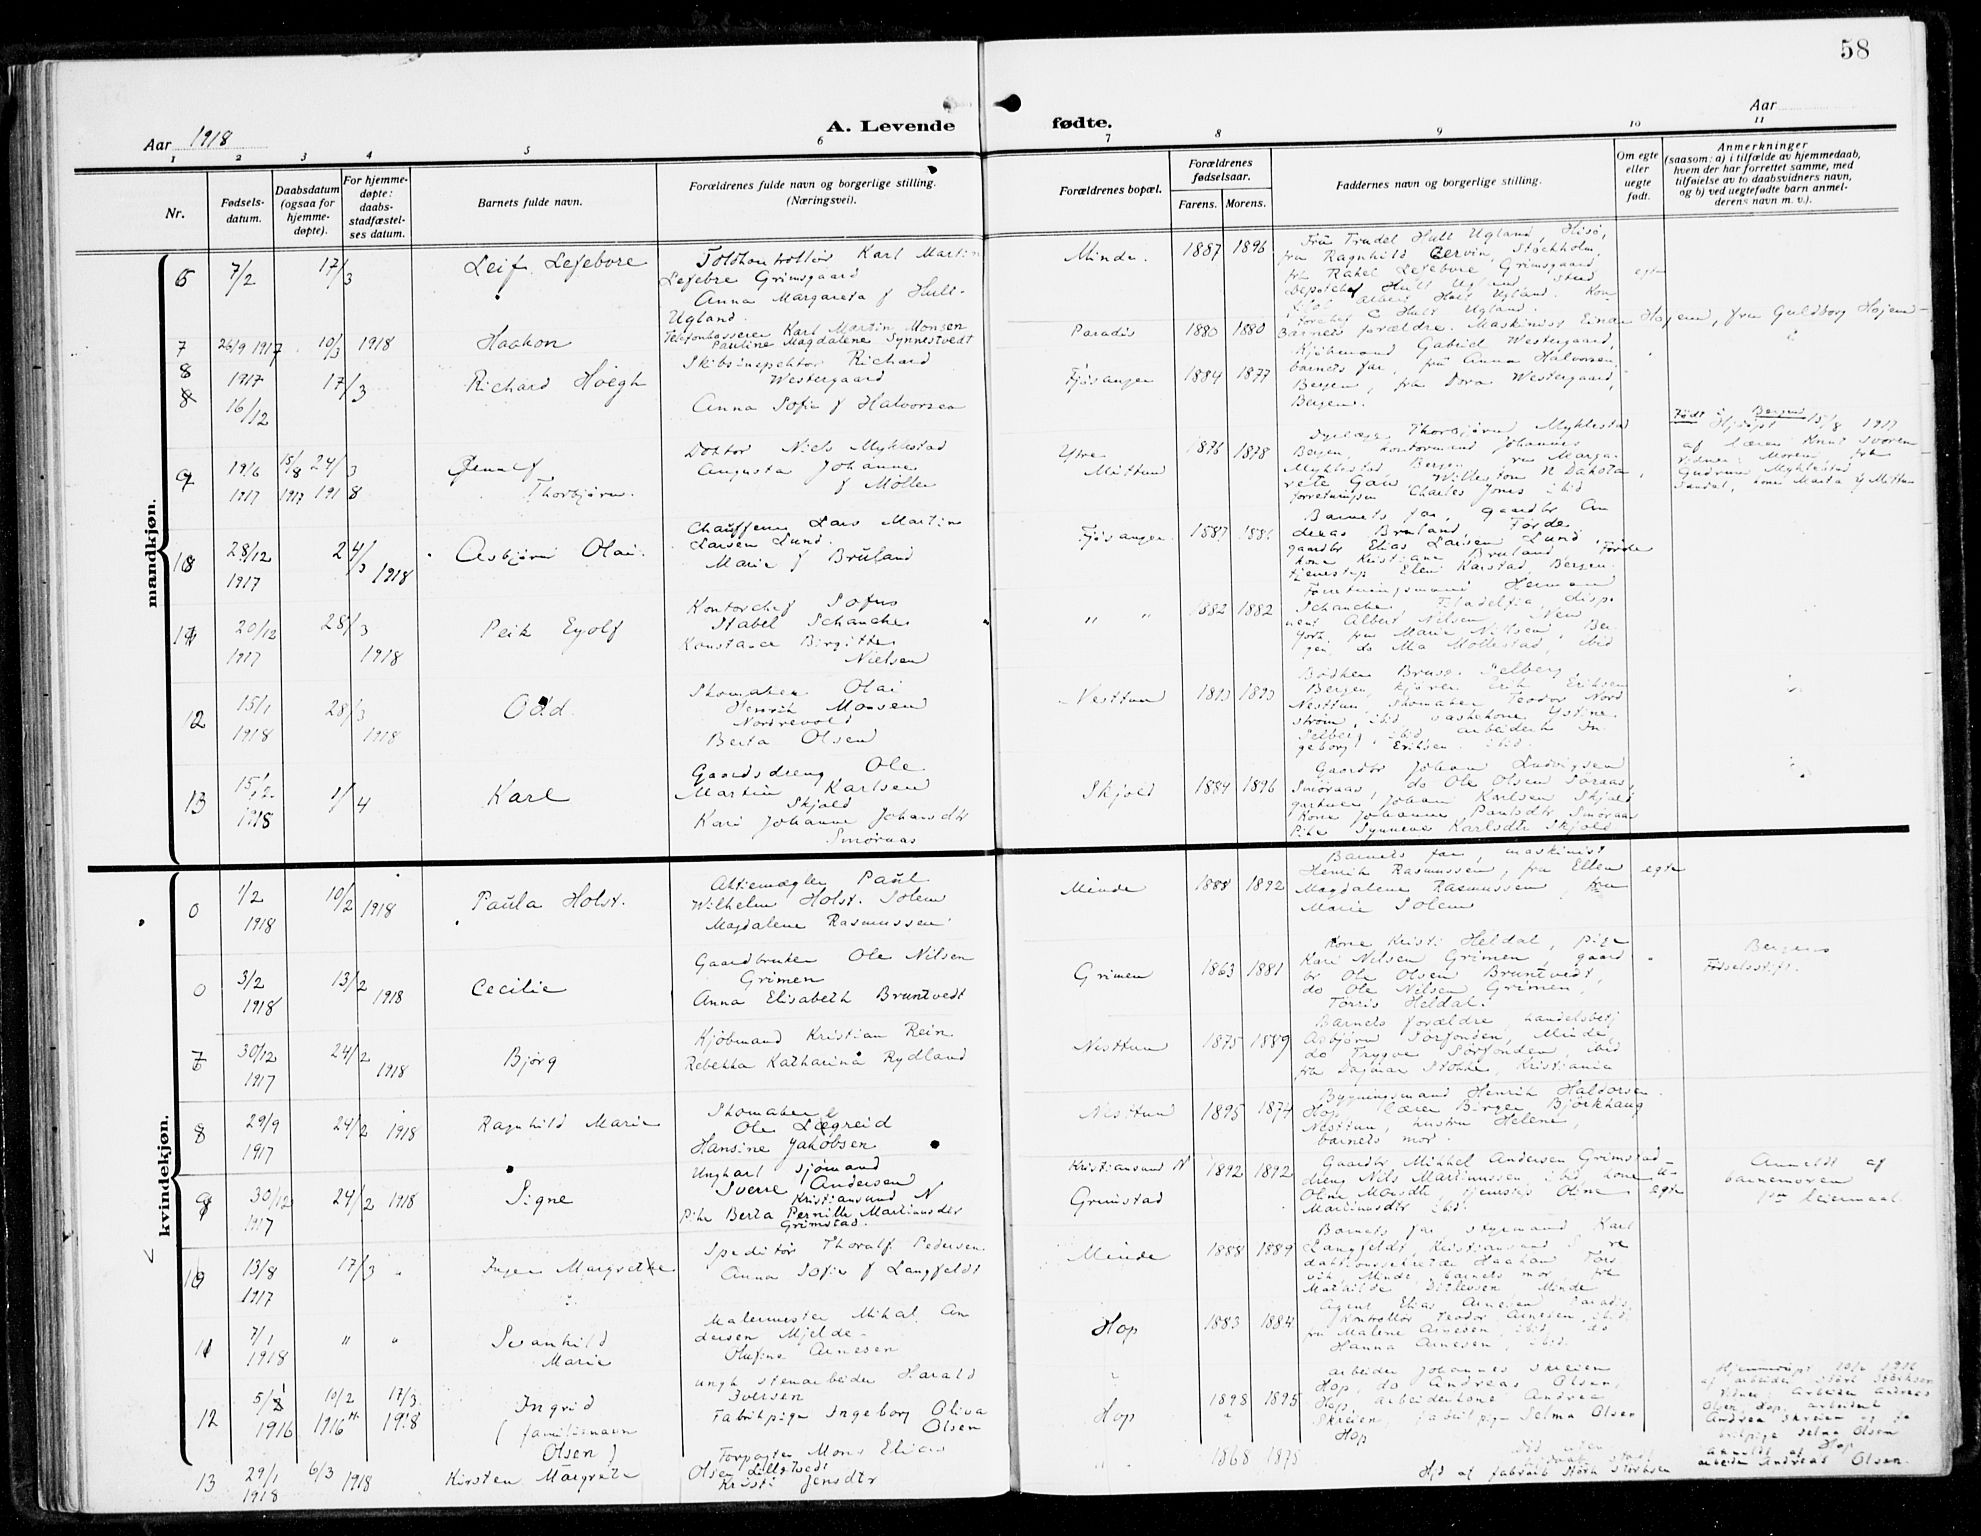 58
Aar 1918
A. Levende fødte.
Aar
1 2 3 4 5 6 7 8 9 10 11
Nr.
Fødsels-
datum.
Daabsdatum
(ogsaa for
hjemme-
døpte).
For hjemme-
døpte:
daabs-
stadfæstel-
ses datum.
Barnets fulde navn.
Forældrenes fulde navn og borgerlige stilling.
(Næringsvei).
Forældrenes bopæl.
Forældrenes
fødselsaar.
Farens. Morens.
Faddernes navn og borgerlige stilling.
Om egte
eller
uegte
født.
Anmerkninger
(saasom: a) i tilfælde av hjemmedaab,
hvem der har forrettet samme, med
tilføielse av to daabsvidners navn,
og b) ved uegtefødte barn anmel-
derens navn m. v.).
mandkjøn.
7/2 17/3 Leif Lefebvre
Karl Martin
Lefebre Grimsgaard
Anna Margareta f Hult-
Ugland.
Minde. 1887 1896
Fru Trudel Hult Ugland, Hisø,
fru Ragnhild Stockholm,
fru Rakel Lefebvre Grimsgaard
Hult Ugland
Albert Hult Ugland.
C Hult Ugland.
egte
7 26/9 1917 10/3 1918 Haakon
Karl Martin Monsen
Pauline Magdalene Synnestvedt
Paradis 1880 1880
Barnets forældre. Maskinist Einar Højem, fru Guldborg Højem
8 1917 16/12 17/3 Richard Høegh
Skibsinspektør Richard
Westergaard
Anna Sofie f Halvorsen
Fjøsanger 1884 1877
Kjøbmand Gabriel Westergaard,
barnets far, fru Anna Halvorsen
Bergen, fru Dora Westergaard,
Bergen.
9 19/6 1917 15/8 1917 24/3 1918
Thorbjørn.
Doktor Niels Myklestad
Augusta Johanne
f Møller
Øvre
Mittun 1876 1878
Thorbjørn Myklestad
Bergen, kontormand Johannes
Myklestad, Bergen, Marga-
rete N Dakota,
forretningsm Charles Jones ibid
Født i Bergen
Hjdøpt 15/8 1917
af lærer Knut
Vidner: Moren, frk
Gudrun Myklestad
10 28/12 1917 24/3 1918 Asbjørn Olai.
Chauffeur Lars Martin
Larsen Lund.
Marie f Bruland
Fjøsanger 1887 1886
Barnets far, gaardbr An
dreas Bruland, Førde,
gaardbr Elias Larsen Lund,
kone Kristiane Bruland, Førde
tjenestep Elen Karstad, Bergen.
11 20/12 1917 28/3 1918 Peik Eyolf
Kontorchef Sofus
Stabel Schanche
Konstance Birgitte
Nielsen
" " 1882 1882
Forretningsmand Herman
Schanche, Filadelfia, disp
nent Albert Nilsen, New
York, fru Marie Nilsen, Ber
gen, do Ma Mollestad, ibid
12 15/1 1918 28/3 1918 Odd.
Skomaker Olai
Henrik Monsen
Nordrevold
Berta Olsen
Nesttun
Bødker Selberg
Bergen, Erik Eriksen
Nesttun, skomaker Teodor Nord
strøm, ibid,
Selberg, ibid, arbeiderk In
geborg Eriksen. ibid.
13 15/2 1918 1/4 Karl
Gaardsdreng Ole
Martin Karlsen
Skjold
Kari Johanne Johansdtr
Smøraas
Skjold 1884 1896
Gaardbr Johan Ludvigsen
Smøraas, do Ole Olsen Søraas,
gartner Johan Karlsen Skjold
Kone Johanne Paulsdtr Smøraas
Pike Synneve Karlsdtr Skjold
kvindekjøn.
1/2 1918 10/2 1918 Paula Holst.
Aktiemægler Paul
Wilhelm Holst. Solem
Magdalene Rasmussen
Minde 1888 1892
Barnets far, maskinist
Henrik Rasmussen, fru Ellen
Magdalene Rasmussen, fru
Marie Solem
egte
3/2 1918 13/2 1918 Cecilie
Gaardbruker Ole Nilsen
Grimen
Anna Elisabeth Bruntvedt
Grimen 1863 1881
Kone Kristi Heldal, pige
Kari Nilsen Grimen, gaard
br Ole Olsen Bruntvedt,
do Ole Nilsen Grimen,
Torris Heldal.
Bergens
Fødselsstift.
7 30/12 1917 24/2 1918 Bjørg
Kjøbmand Kristian Rein
Rebekka Katharina Rydland
Nesttun 1875 1889
Barnets forældre, handelsbetj
Asbjørn Sørfonden, Minde
do Trygve Sørfonden, ibid
fru Dagmar Stokke, Kristiania
8 29/9 1917 24/2 1918 Ragnhild Marie
Skomaker
Ole Lægreid
Hansine Jakobsen
Nesttun 1895 1874
Bygningsmand Henrik Haldorsen
Hop, lærer Birger Bjørkhaug
Nesttun, hustru Helene,
barnets mor.
9 30/12 1917 24/2 1918 Signe
Ungkarl sjømand
Sverre Andersen
Kristiansund N
Pike Berta Pernille Martinusdtr
Grimstad.
Kristiansund N
Grimstad 1892 1892
Gaardbr Mikkel Andersen Grimstad
dreng Nils Martinussen, ibid, kone
Oline Monsdtr, tjenestep Oline
Martinusdtr ibid.
uegte
Anmeldt af
barnemoren
1ste leiermaal.
10 13/8 1917 17/3 " Inger Margrethe
Speditør Thoralf Pedersen
Anna Sofie f Langfeldt
Minde 1888 1889
Barnets far styrmand Karl
Langfeldt, Kristiansund S re
daktionssekretær Haakon Tors
vik, Minde, barnets mor, frk
Mathilde Ditlevsen Minde
11 7/1 1918 " " Svanhild
Marie
Malermester Mikal An
dersen Mjelde
Olufine Arnesen
Hop 1883 1884
Agent Elias Arnesen Paradis
Kontrollør Teodor Arnesen, ibid
fru Malene Arnesen, ibid, do
Hanna Arnesen, ibid.
12 5/1 1916 10/2 1916 17/3 1918 Ingrid
(familienavn
Olsen)
ungk stenarbeider Harald
Iversen
Fabrikpige Ingeborg Oliva
Olsen
Hop 1898 1895
arbeider Johannes Skreien
Hop, do Andreas Olsen,
Hop, arbeiderkone Andrea
Skreien, fabrikpige Selma Olsen
Hop
Hjemmedøpt 1916
af arbeider Størk Størksen
Vidner: Arbeider Andreas
Olsen, Hop, arbeiderk
Andrea Skreien og fa
brikpige Selma Olsen
Hop
anmeldt af
arbeider Andreas Olsen.
13 29/1 1918 6/3 1918 Kirsten Margrete
Forpagter Mons Elias
Olsen
Kristi Jensdtr
" " 1868 1875
Hjd af fabrikb Størk Størksen